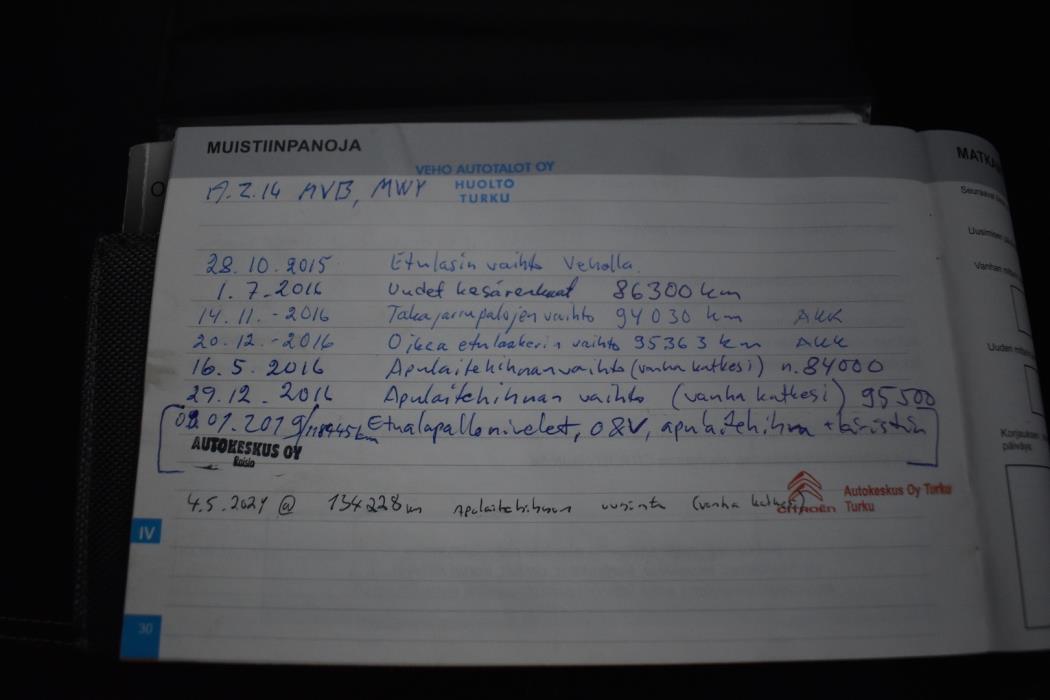 MUISTIINPANOJA
VEHO AUTOTALOT OY
HUOLTO
TURKU
17.2.14 AVB, MWY
28.10.2015 Etulasin vaihto Veholla.
1.7.2016 Uudet kesärenkaat 86300 km
14.11.-2016 Takajarrupalojen vaihto 94030 km AKK
20.12.-2016 Oikea etulaakerin vaihto 95363 km AKK
16.5.2016 Apulaitehihnanvaihto (vanha katkesi) n. 84000
29.12.2016 Apulaitehihnan vaihto (vanha katkesi) 95500
07.2019 km Etualapallonivelet, O&V, apulaitehihna + kiristin
AUTOKESKUS OY
Raisio
4.5.2021 @ 134228 km Apulaitehihnan uusinta (vanha katkesi)
CITROËN
Autokeskus Oy Turku
Turku
IV
30
MATKA
Seuraavat
Uusimisen
Vanhan
Uuden
Korjauksen
päiväys: